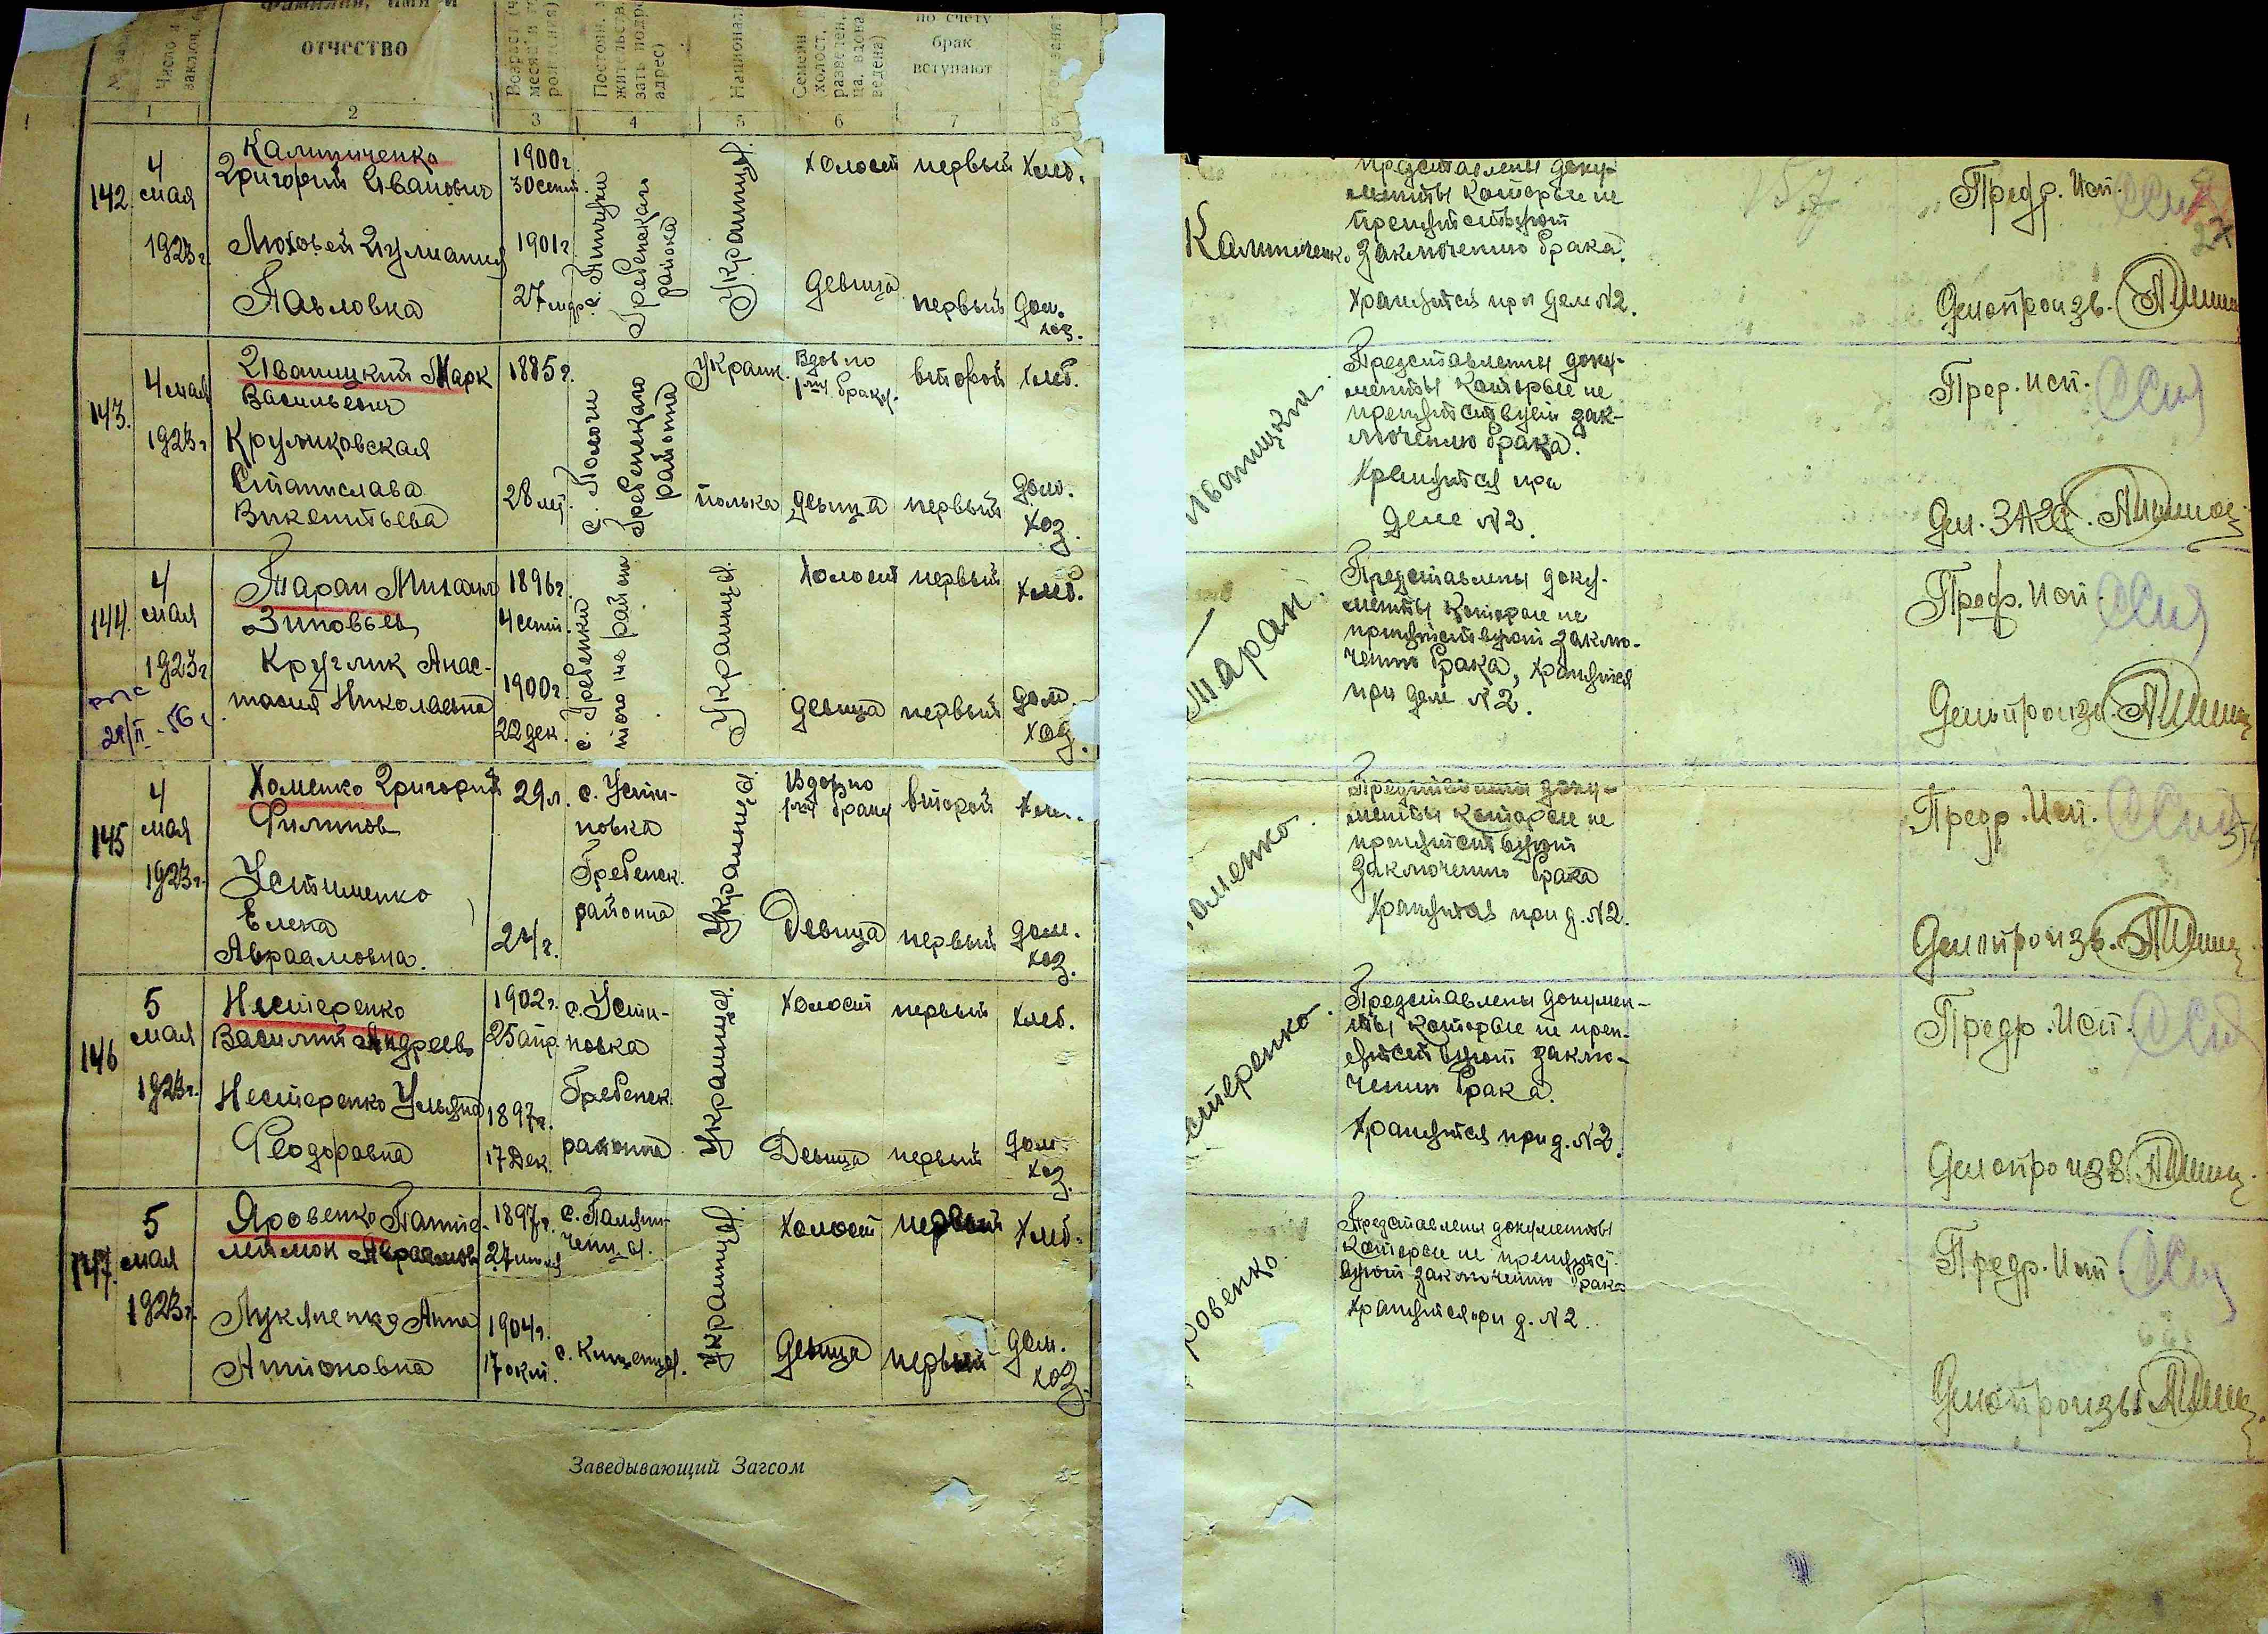 Фамилия, имя и
отчество
по счету
брак
вступают
1 2 3 4 5 6 7 8
142
4
мая
1923 г.
Калиниченко
Григорий Иванович
1900 г.
30 сент.
Гребенского
района
Украинцы
холост первый хлеб.
Павловна
1901 г.
27
девица первый дом.
хоз.
143.
4 мая
1923 г.
Иваницкий Марк
Васильевич
1885 г.
Гребенского
района
Украин.
Вдов по
1му браку.
второй хлеб.
Круликовская
Станислава
Викентьева
28 л.
полька девица первый дом.
хоз.
144.
4
мая
1923 г.
Таран Михаил
Зиновьев
1896 г.
4 сент.
с. Гребенки
того же района
Украинцы.
Холост первый хлеб.
Круглик Анас-
тасия Николаевна
1900 г.
22 дек.
девица первый дом.
хоз.
145
4
мая
1923 г.
Хоменко Григорий
Филипов
29 л.
с. Усти-
новка
Гребенск.
района
Украинцы.
Вдов по
1му браку
второй
Устименко
Елена
Авраамовна.
21 г.
Девица первый дом.
хоз.
146
5
мая
1923 г.
Нестеренко
Василий Андреев
1902 г.
25 апр.
с. Усти-
новка
Гребенск.
района
Украинцы.
Холост первый хлеб.
Нестеренко Ульяна
Феодоровна
1897 г.
17 Дек.
Девица первый дом.
хоз.
147.
5
мая
1923 г.
Яровенко Панте-
леймон Авраамов
1897 г.
Украинцы.
Холост первый хлеб.
Лукяненко Анна
Антоновна
1904 г.
17 окт.
девица первый дом.
хоз.
Заведывающий Загсом
Калиниченк.
представлены доку-
менты которые не
препятствуют
заключению брака.
Хранятся при деле №2.
Предр. Исп.
Делопроизв.
Иваницкий.
Представлены доку-
менты которые не
препятствуют зак-
лючению брака.
Хранятся при
деле №2.
Предр. Исп.
Дел. ЗАГС.
Таран.
Представлены доку-
менты которые не
препятствуют заклю-
чению брака, хранятся
при деле №2.
Предр. Исп.
Делопроизв.
Хоменко.
Представлены доку-
менты которые не
препятствуют
заключению брака
Хранятся при д. №2.
Предр. Исп.
Делопроизв.
естеренко.
Представлены докумен-
ты которые не преп-
ятствуют заклю-
чению брака.
Хранятся при д. №2.
Предр. Исп.
Делопроизв.
ровенко.
Представлены документы
которые не препятст-
вуют заключению брака
Хранятся при д. №2.
Предр. Исп.
Делопроизв.